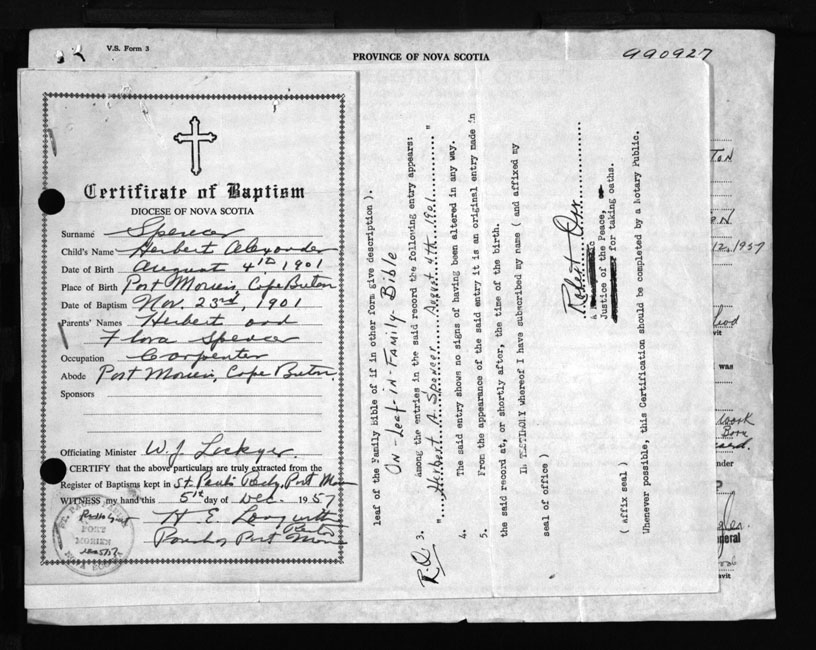 V.S. Form 3
PROVINCE OF NOVA SCOTIA
990927
Certificate of Baptism
DIOCESE OF NOVA SCOTIA
Surname Spencer
Child's Name Herbert Alexander
Date of Birth August 4th 1901
Place of Birth Port Morien, Cape Breton
Date of Baptism Nov. 23rd, 1901
Parents' Names Herbert and
Flora Spencer
Occupation Carpenter
Abode Port Morien, Cape Breton.
Sponsors
Officiating Minister W. J. Lockyer.
I CERTIFY that the above particulars are truly extracted from the
Register of Baptisms kept in St. Paul's Port Morien
WITNESS my hand this 5th day of Dec. 1957
H E
Rector
Port Morien
PORT
MORIEN
NOVA SCOTIA
leaf of the Family Bible of if in other form give description ).
ON-Leaf-IN-Family-Bible
R.O. 3. Among the entries in the said record the following entry appears:
"....Herbert A. Spenser August 4th 1901............"
4. The said entry shows no signs of having been altered in any way.
5. From the appearance of the said entry it is an original entry made in
the said record at, or shortly after, the time of the birth.
IN TESTIMONY whereof I have subscribed my name ( and affixed my
seal of office )
Robert Orr
A
Justice of the Peace,
for taking oaths.
( affix seal )
Whenever possible, this Certification should be completed by a Notary Public.
TON
ON
12, 1957
was
Work
Born
under
neral
avit